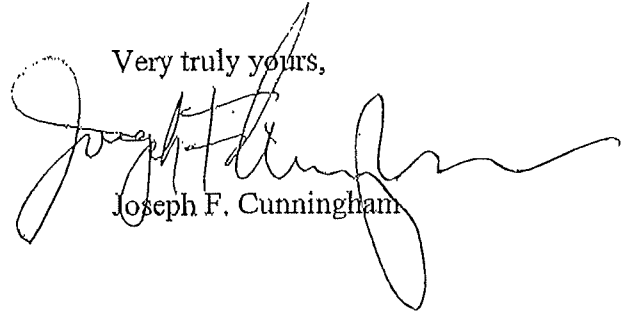 Very truly yours,
Joseph F. Cunningham
Joseph F. Cunningham